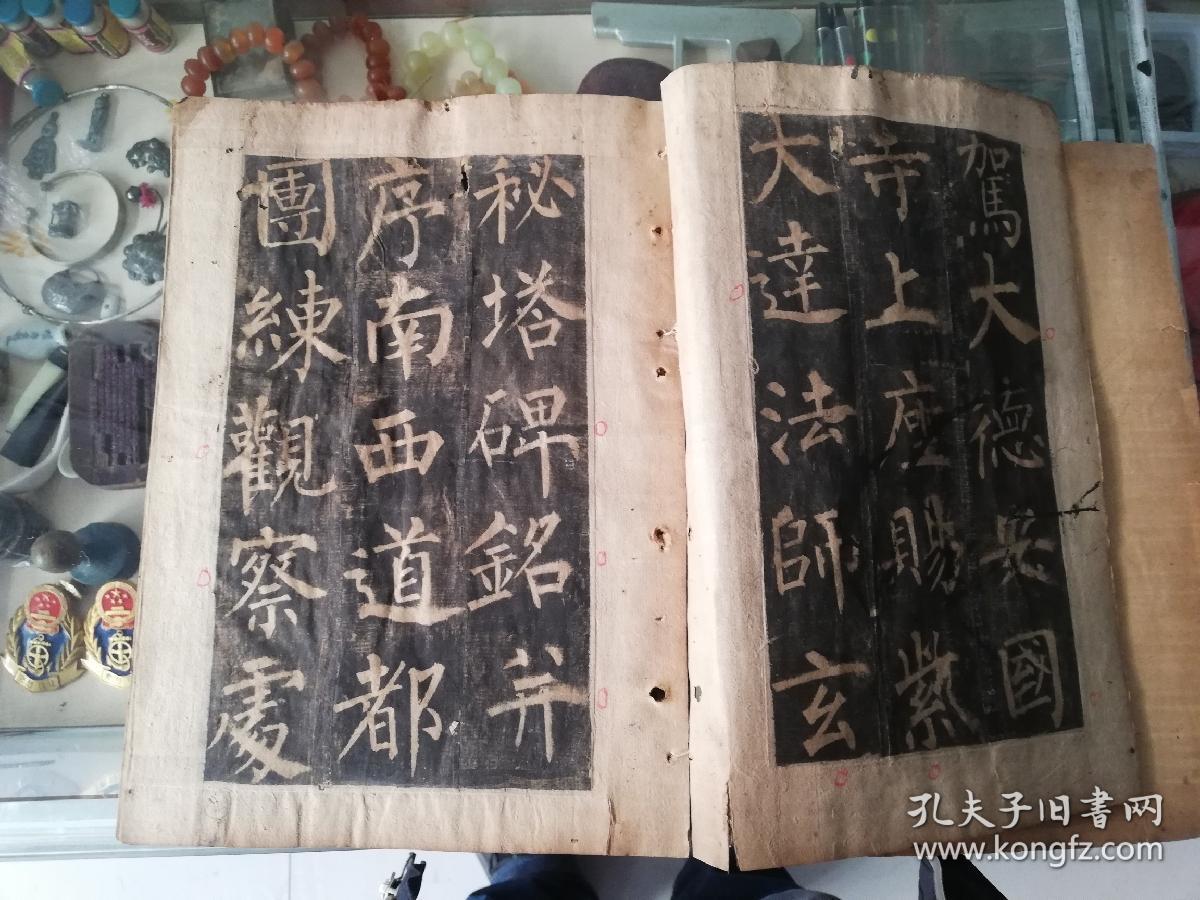 駕大德安國
寺上座賜紫
大達法師玄
秘塔碑銘并
序南西道都
團練觀察處
孔夫子旧書网
www.kongfz.com